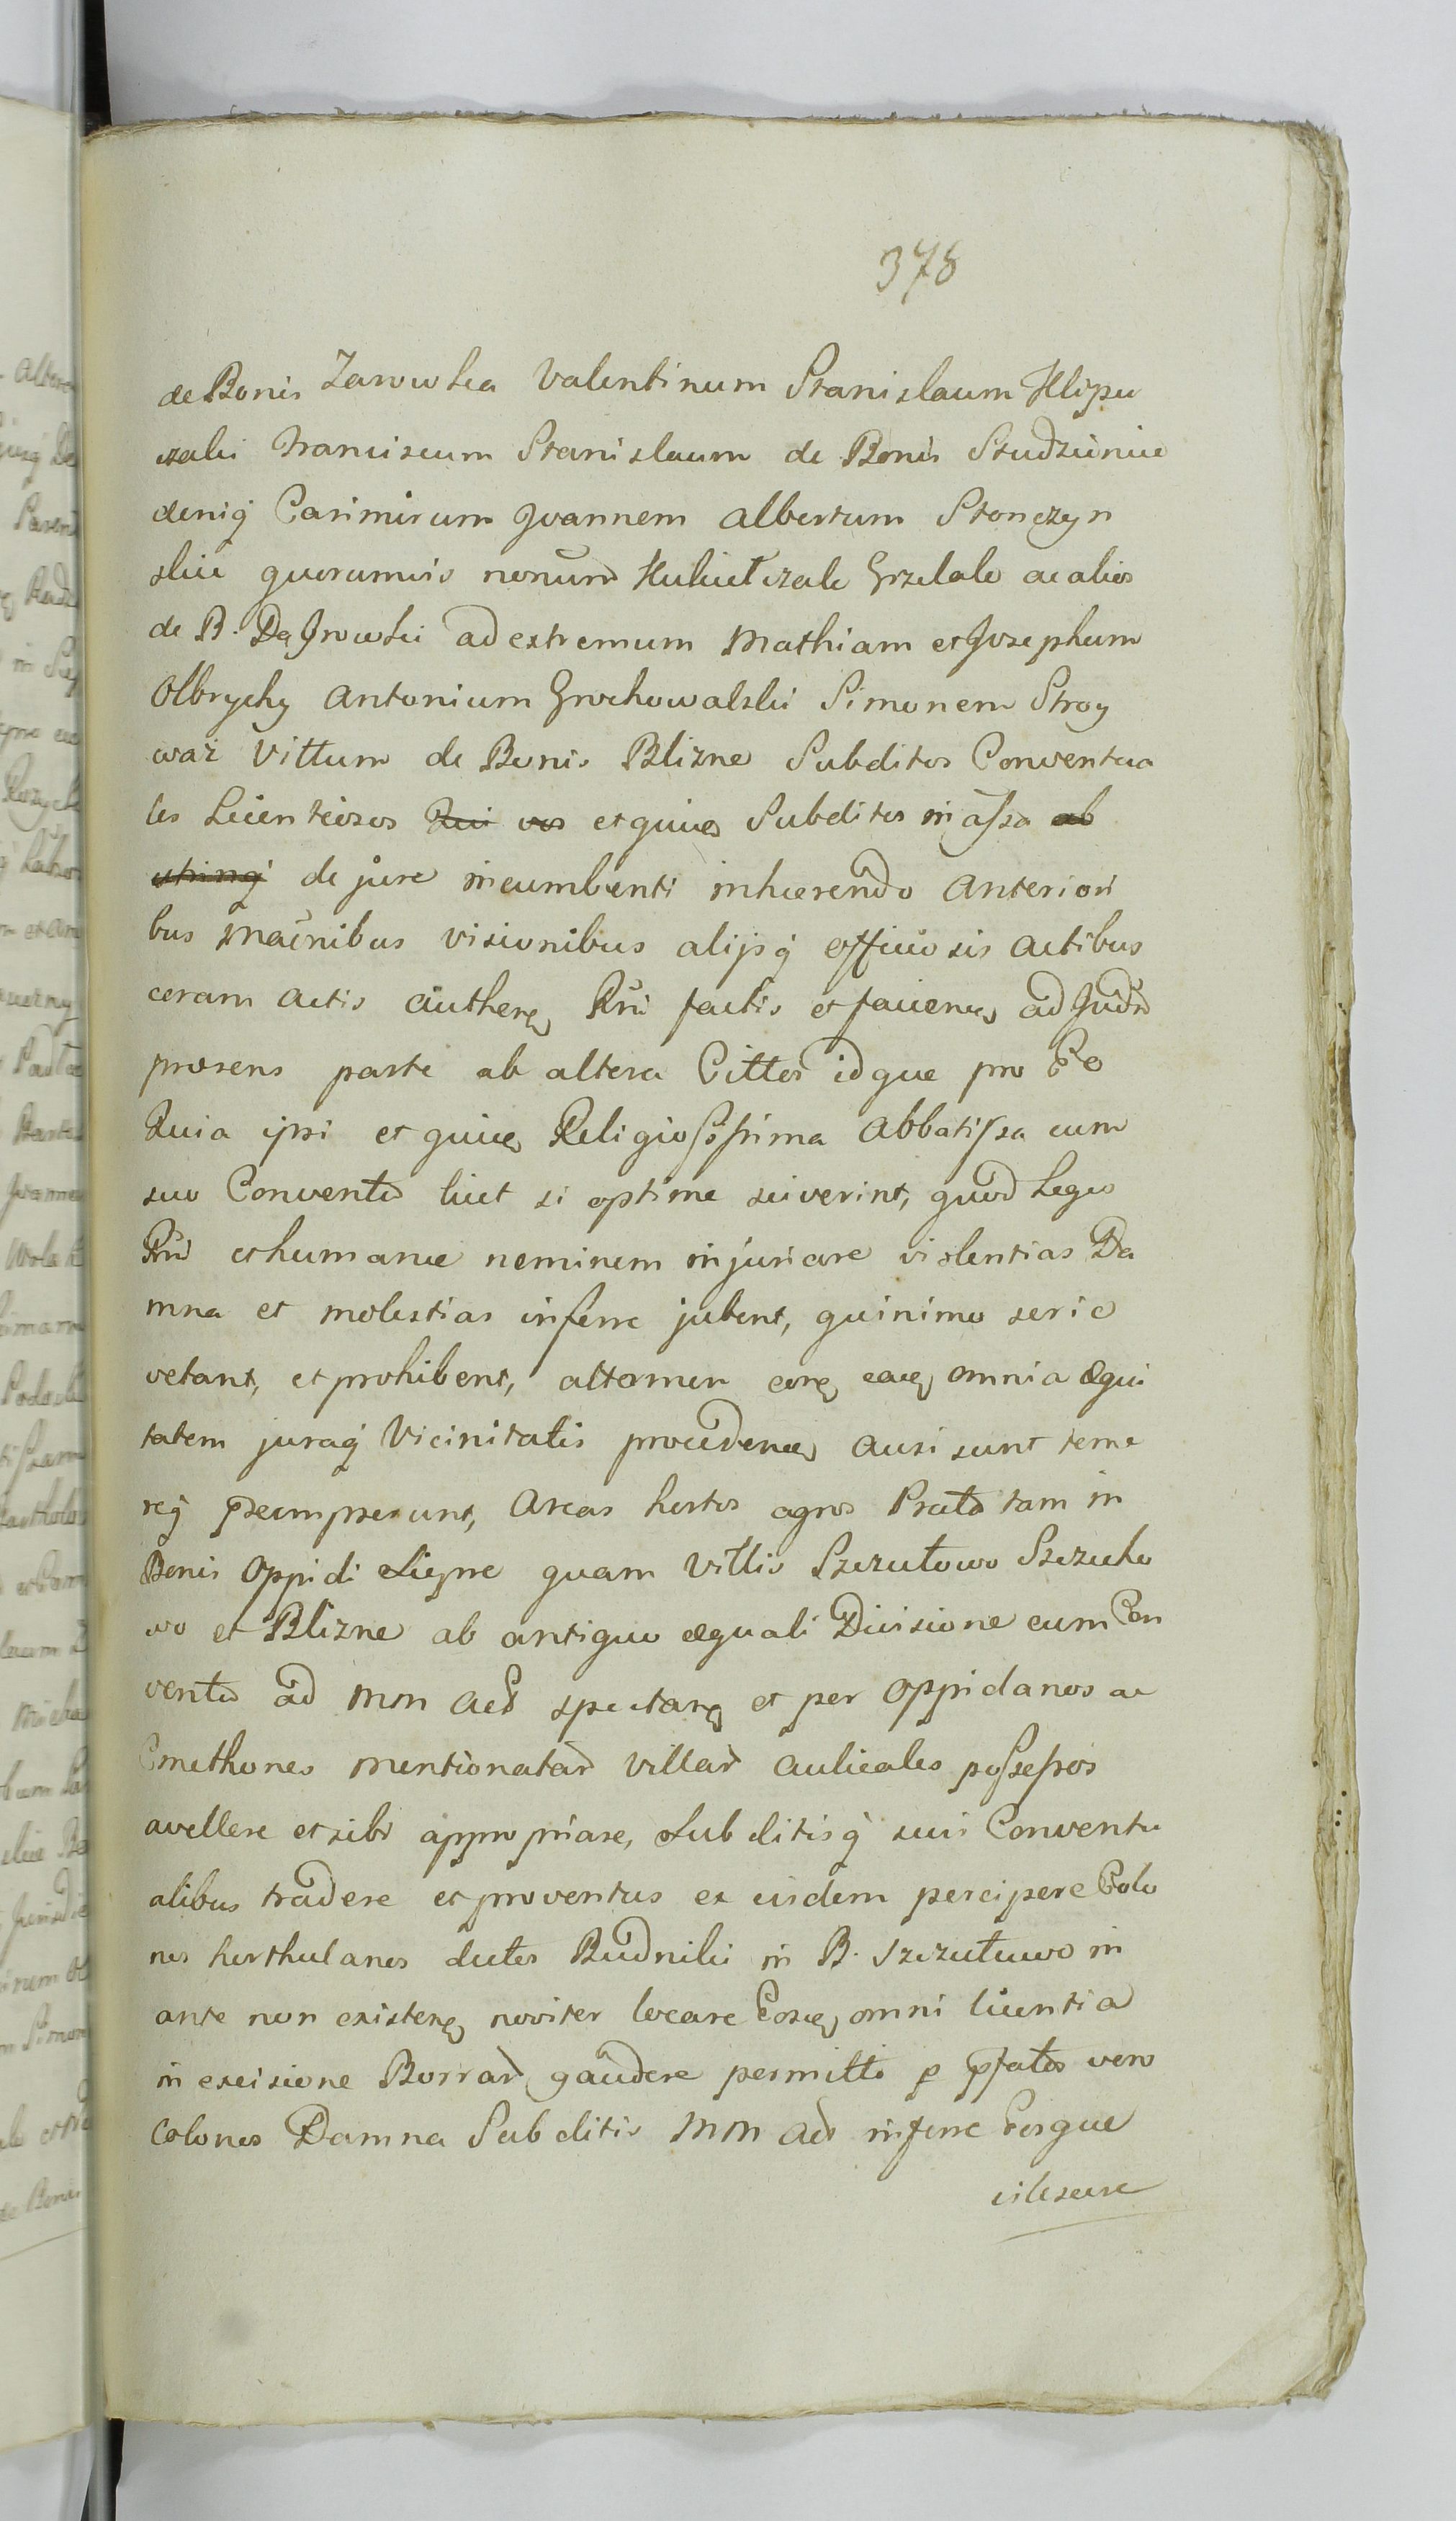 378
de Bonis Zarowka Valentinum Stanislaum Klipu
Franciscum Stanislaum de Bonis Studzienice
deniq Casimirum Joannem Albertum Stonczyn
skie quorumvis nonum Grzelak ac alios
de B. Dąbrowki ad extremum Mathiam et Josephum
Olbrychy Antonium Grochowalski Simonem Stroy
waz Vittum de Bonis Blizne Subditos Conventua
les Licentiosos Qui vos et quives Subditos in assa ab
utrinq de jure incumbenti inhaerendo Anteriori
bus visionibus alijsq officiosis Actibus
coram Actis authen Rni factis et faciend ad Judm
praesens parte ab altera Cittos idque pro Eo
Quia ipsi et quive Religiosissima Abbatissa cum
suo Conventu licet si optime sciverint, quod Leges
Rni et humanae neminem injuriare violentias Da
mna et molestias inferre jubent, quinimo serio
vetant, et prohibent, attamen omnia Aequi
tatem juraq Vicinitatis procedend Ausi sunt teme
req praesumpserunt, Areas hortos agros Prata tam in
Bonis Oppidi Ligne quam Villis Szczutowo Szczecho
wo et Blizne ab antiquo aequali Divisione cum Con
ventu ad MM Act spectan et per Oppidanos ac
Cmethones mentionatar Villar aulicales possessos
avellere et sibi appropriare, Subditisq suis Conventu
alibus tradere et proventus ex iisdem percipere Colo
nos horthulanos dictos Budniki in B. Szczutowo in
ante non existen noviter locare Eosq omni licentia
in excisione Borrar gaudere permitti p pfatos vero
Colonos Damna Subditis MM Act inferre Eosque